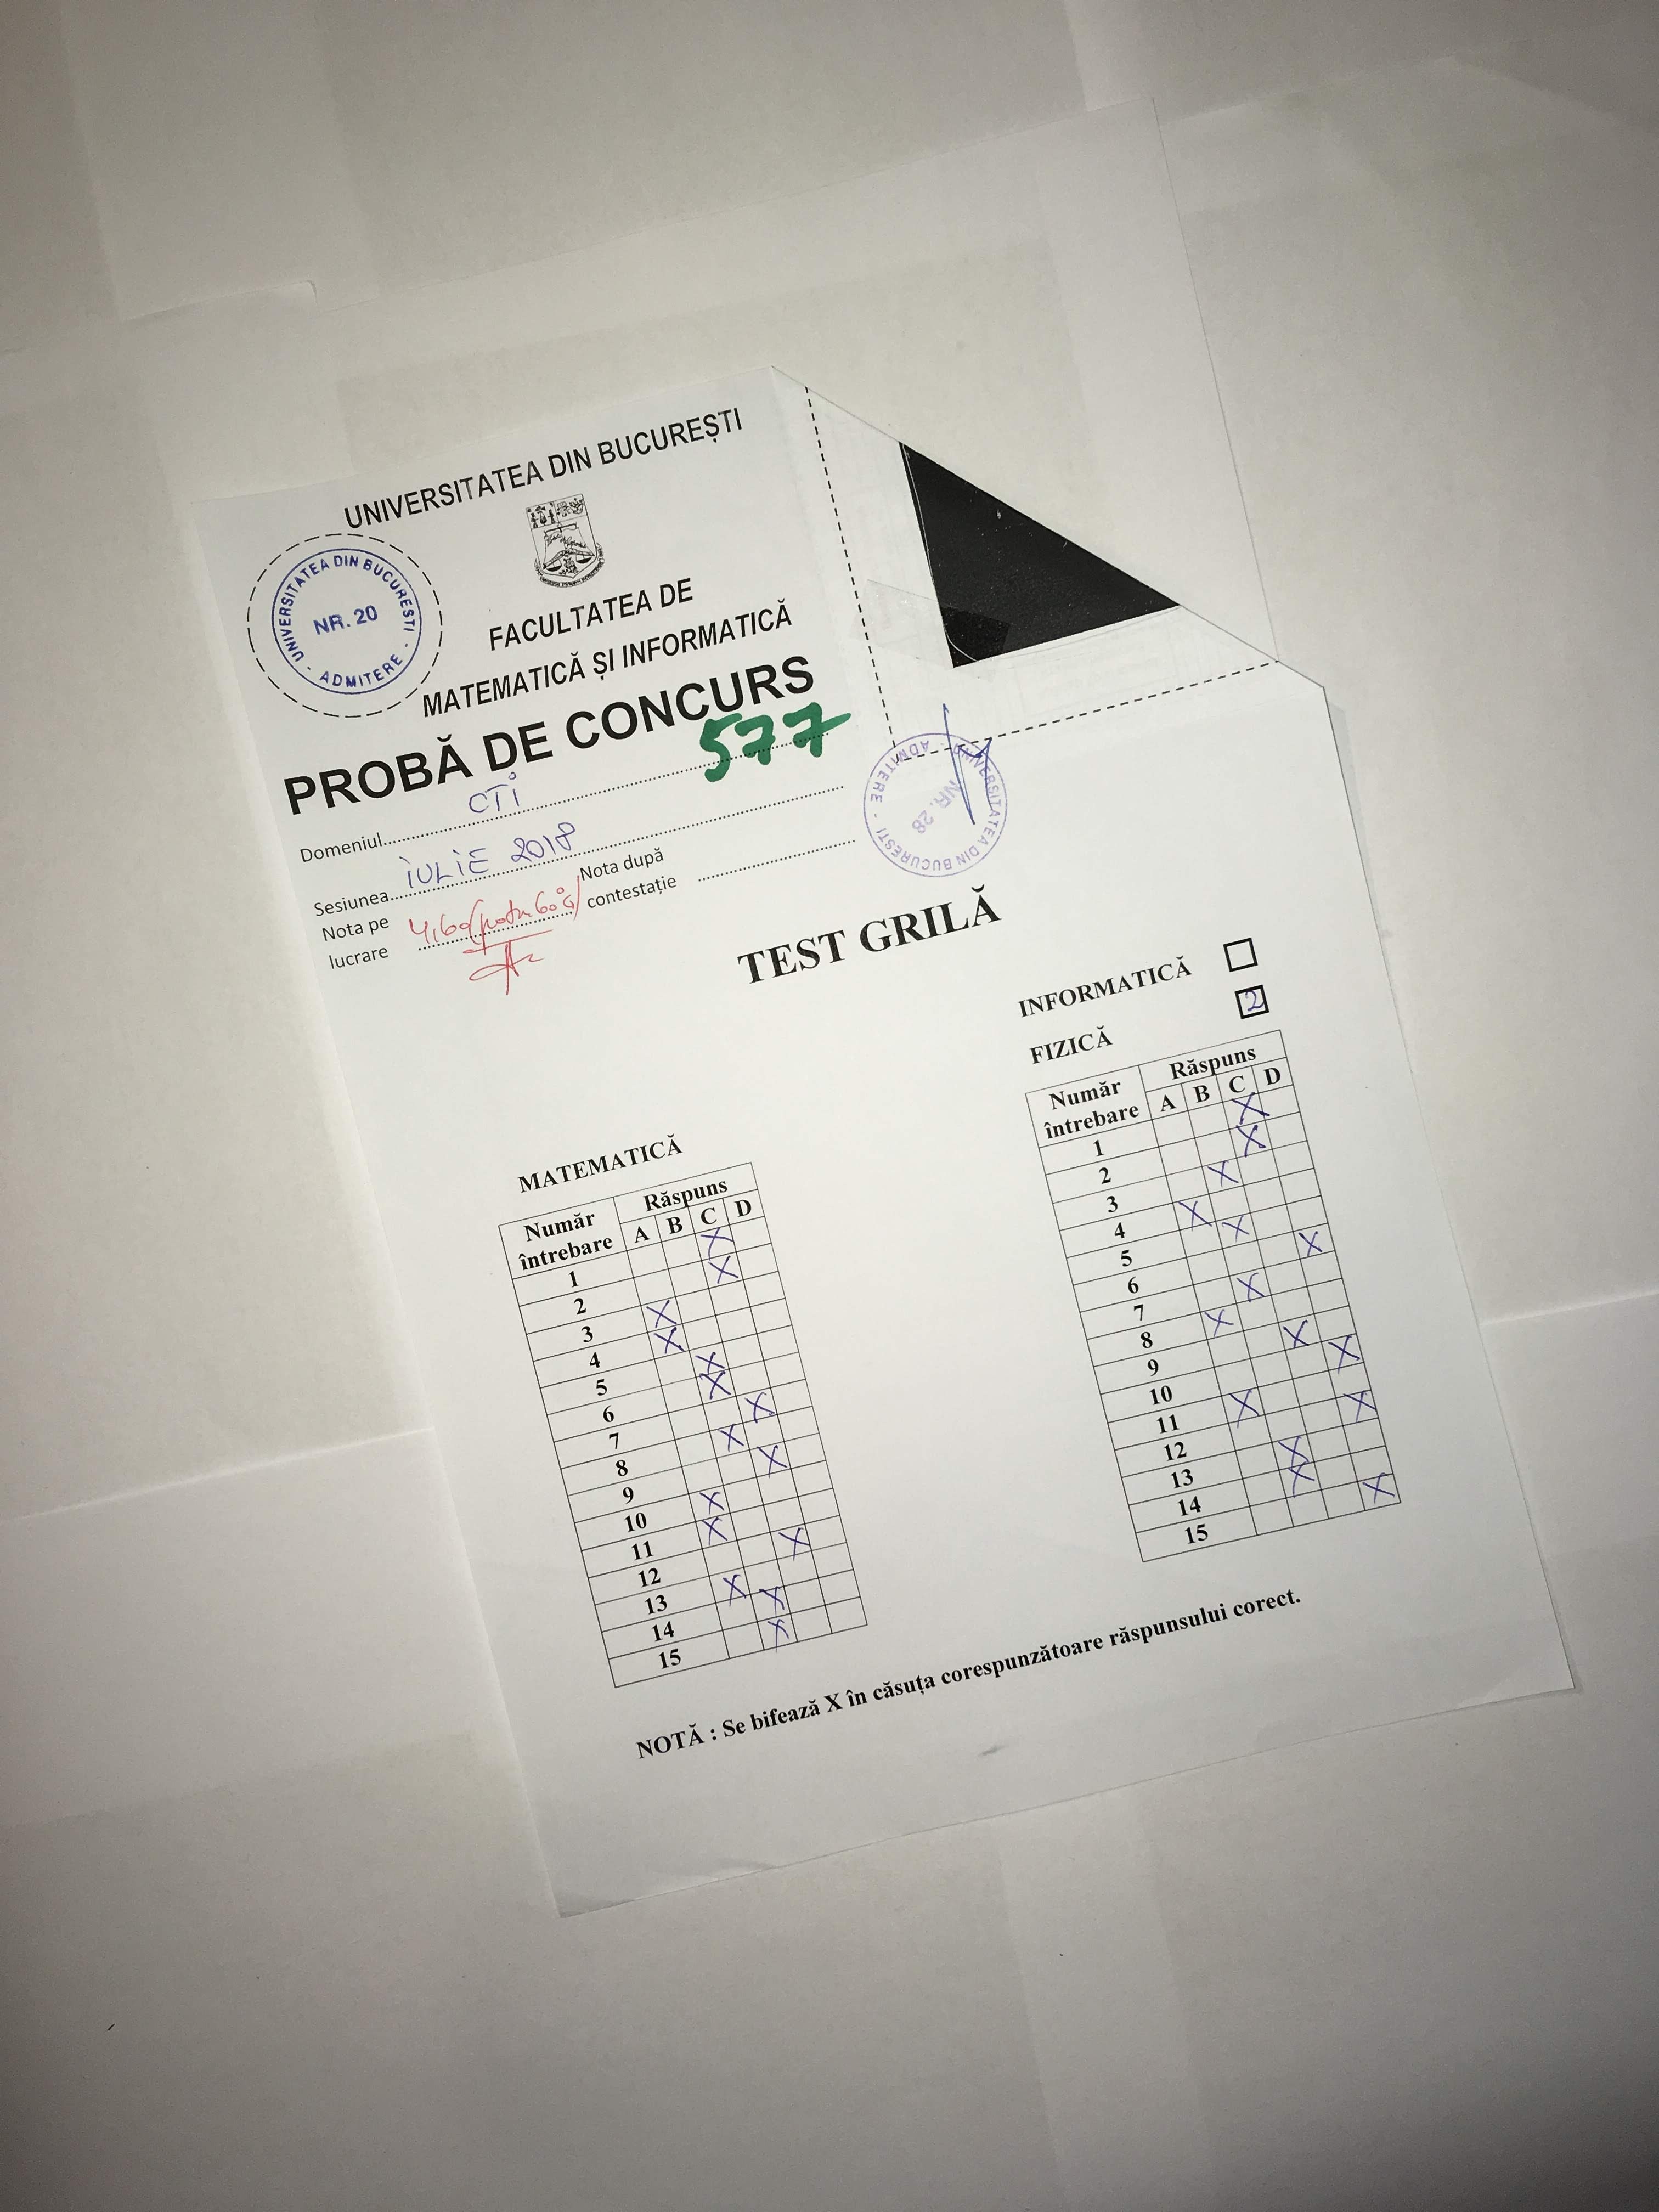 UNIVERSITATEA DIN BUCUREȘTI
UNIVERSITATEA DIN BUCURESTI - ADMITERE -
NR. 20
FACULTATEA DE
MATEMATICĂ ȘI INFORMATICĂ
PROBĂ DE CONCURS
577
Domeniul CTi
Sesiunea iULiE 2018
Nota pe lucrare 4,60
Nota după contestație
UNIVERSITATEA DIN BUCURESTI - ADMITERE -
NR. 28
TEST GRILĂ
INFORMATICĂ
FIZICĂ 2
MATEMATICĂ
Număr întrebare Răspuns
A B C D
1 X
2 X
3 X
4 X
5 X
6 X
7 X
8 X
9 X
10 X
11 X
12 X
13 X
14 X
15 X
Număr întrebare Răspuns
A B C D
1 X
2 X
3 X
4 X
5 X
6 X
7 X
8 X
9 X
10 X
11 X
12 X
13 X
14 X
15 X
NOTĂ : Se bifează X în căsuța corespunzătoare răspunsului corect.